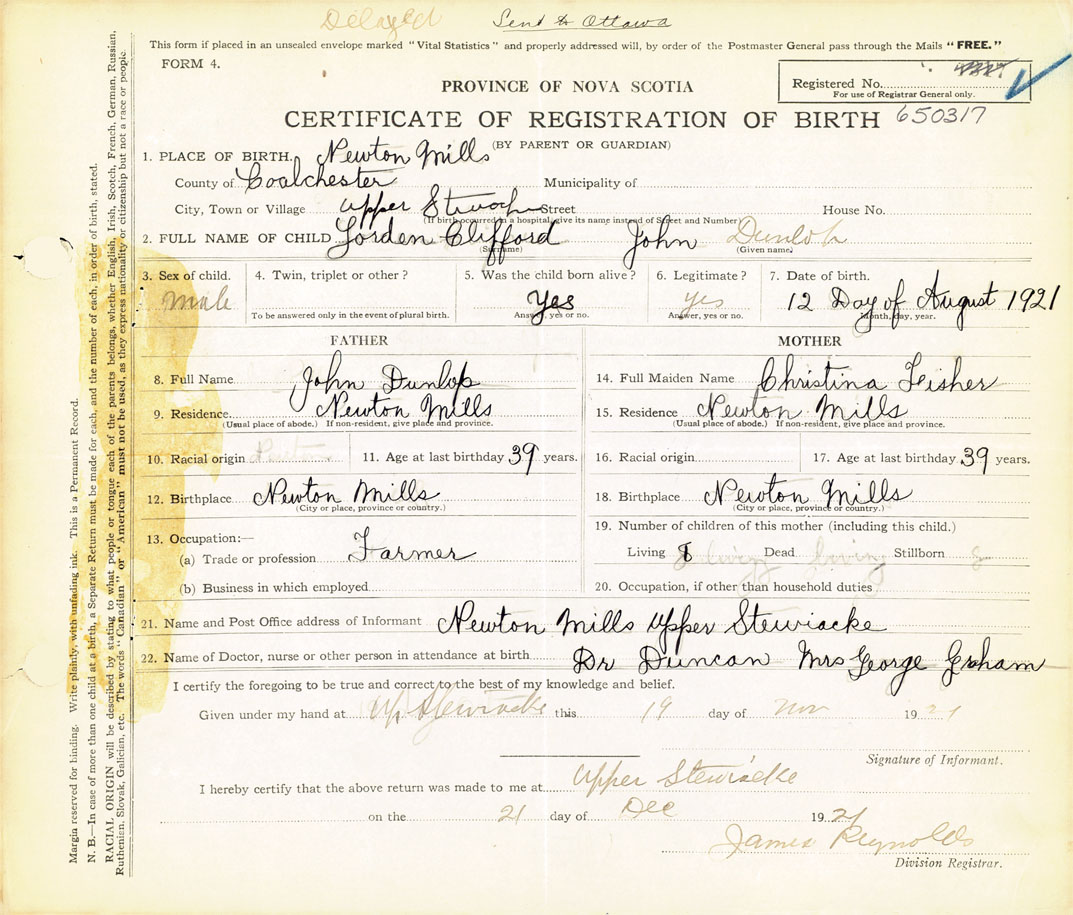 Delayed Sent to Ottawa
This form if placed in an unsealed envelope marked "Vital Statistics" and properly addressed will, by order of the Postmaster General pass through the Mails "FREE."
FORM 4.
PROVINCE OF NOVA SCOTIA
Registered No.
For use of Registrar General only.
CERTIFICATE OF REGISTRATION OF BIRTH 650317
(BY PARENT OR GUARDIAN)
1. PLACE OF BIRTH. Newton Mills
County of Coalchester Municipality of
City, Town or Village Upper Street House No.
(If birth occurred in a hospital, give its name instead of Street and Number)
2. FULL NAME OF CHILD Jorden Clifford John Dunlop
(Surname) (Given name)
3. Sex of child. 4. Twin, triplet or other? 5. Was the child born alive? 6. Legitimate? 7. Date of birth.
Male Yes Yes 12 Day of August 1921
To be answered only in the event of plural birth. Answer, yes or no. Answer, yes or no. Month, day, year.
FATHER MOTHER
8. Full Name John Dunlop 14. Full Maiden Name Christina Fisher
9. Residence Newton Mills 15. Residence Newton Mills
(Usual place of abode.) If non-resident, give place and province. (Usual place of abode.) If non-resident, give place and province.
10. Racial origin 11. Age at last birthday 39 years. 16. Racial origin 17. Age at last birthday 39 years.
12. Birthplace Newton Mills 18. Birthplace Newton Mills
(City or place, province or country.) (City or place, province or country.)
19. Number of children of this mother (including this child.)
13. Occupation:—
(a) Trade or profession Farmer Living 8 Dead Stillborn
(b) Business in which employed 20. Occupation, if other than household duties
21. Name and Post Office address of Informant Newton Mills Upper Stewiacke
22. Name of Doctor, nurse or other person in attendance at birth Dr Duncan Mrs George Graham
I certify the foregoing to be true and correct to the best of my knowledge and belief.
Given under my hand at Up Stewiacke this 19 day of Nov 1921
Signature of Informant.
I hereby certify that the above return was made to me at Upper Stewiacke
on the 21 day of Dec 1921
James Reynolds
Division Registrar.
Margin reserved for binding. Write plainly, with unfading ink. This is a Permanent Record.
N. B.—In case of more than one child at a birth, a Separate Return must be made for each, and the number of each, in order of birth, stated.
RACIAL ORIGIN will be described by stating to what people or tongue each of the parents belongs, whether English, Irish, Scotch, French, German, Russian,
Ruthenian, Slovak, Galician, etc. The words "Canadian" or "American" must not be used, as they express nationality or citizenship but not a race or people.